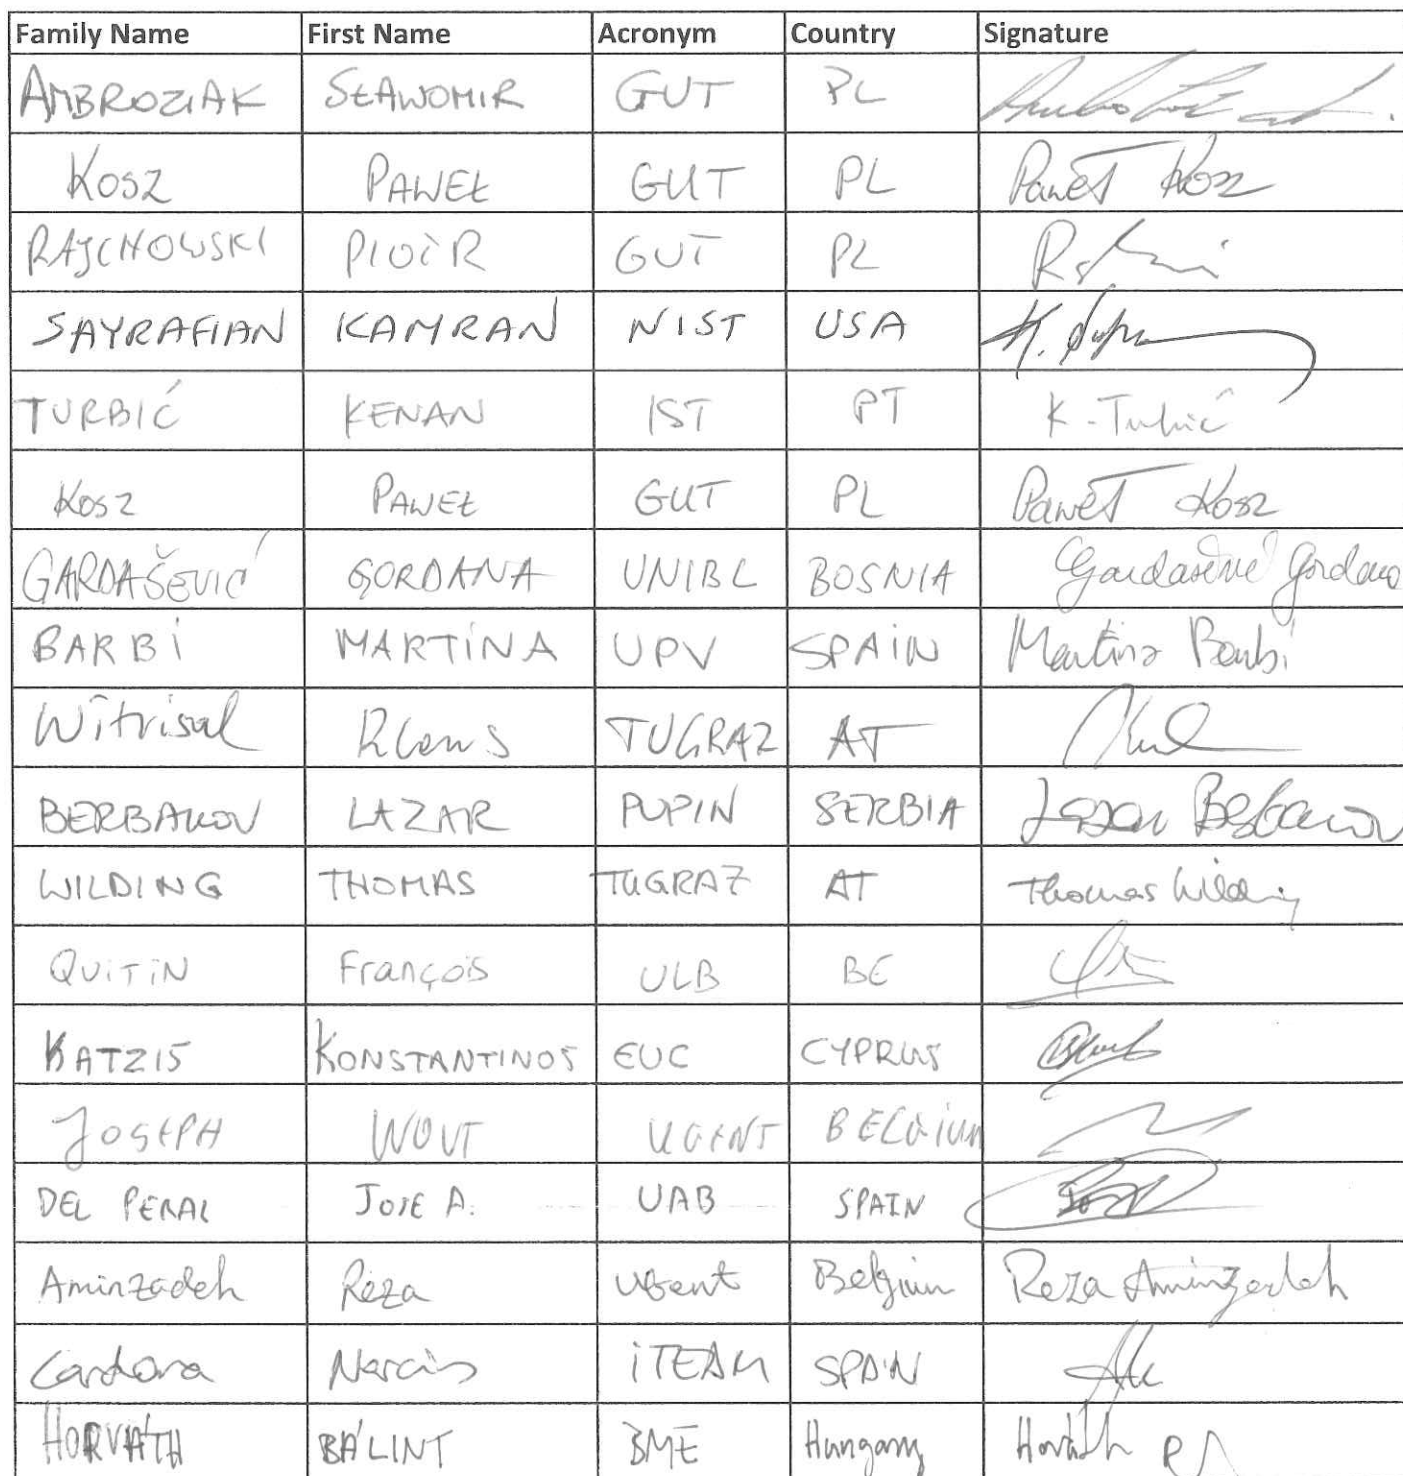 Family Name First Name Acronym Country Signature
AMBROZIAK SŁAWOMIR GUT PL
KOSZ PAWEŁ GUT PL Paweł Kosz
RAJCHOWSKI PIOTR GUT PL
SAYRAFIAN KAMRAN NIST USA
TURBIĆ KENAN IST PT K. Turbić
KOSZ PAWEŁ GUT PL Paweł Kosz
GARDAŠEVIĆ GORDANA UNIBL BOSNIA Gardašević Gordana
BARBI MARTINA UPV SPAIN Martina Barbi
Witrisal Klaus TUGRAZ AT
BERBAKOV LAZAR PUPIN SERBIA Lazar Berbakov
WILDING THOMAS TUGRAZ AT Thomas Wilding
QUITIN François ULB BE
KATZIS KONSTANTINOS EUC CYPRUS
JOSEPH WOUT UGENT BELGIUM
DEL PERAL JOSE A. UAB SPAIN
Aminzadeh Reza UGent Belgium Reza Aminzadeh
Cardona Narcis iTEAM SPAIN
HORVÁTH BÁLINT BME Hungary Horváth